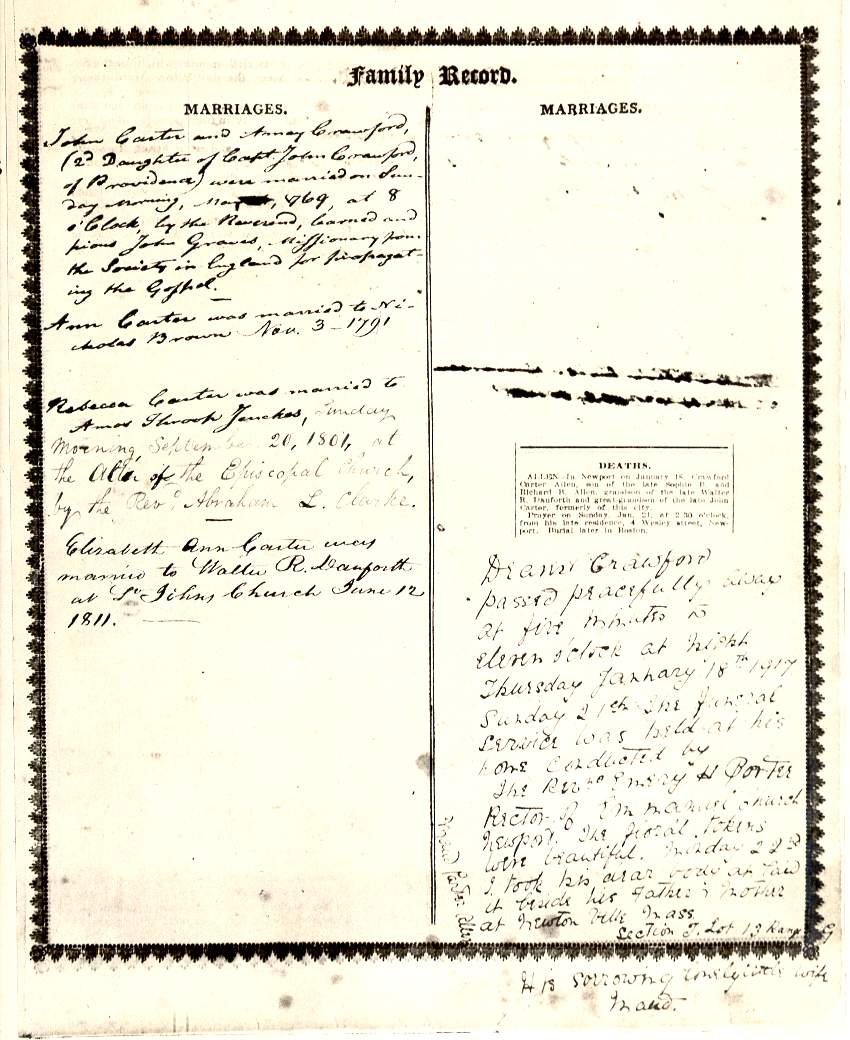 Family Record.
MARRIAGES.
John Carter and Amey Crawford,
(2d Daughter of Capt. John Crawford,
of Providence) were married on Sun-
day Morning, 1769, at 8
o'Clock, by the Reverend, learned and
pious John Graves, Missionary from
the Society in England for propagat-
ing the Gospel.
Ann Carter was married to Ni-
cholas Brown Nov. 3 - 1791
Rebecca Carter was married to
Amos Throop Jenckes, Sunday
Morning, September 20, 1801, at
the Altar of the Episcopal Church,
by the Revd. Abraham L. Clarke.
Elizabeth Ann Carter was
married to Walter R. Danforth
at St Johns Church June 12
1811.
MARRIAGES.
DEATHS.
ALLEN—In Newport on January 18, Crawford
Carter Allen, son of the late Sophie D. and
Richard B. Allen, grandson of the late Walter
R. Danforth and great-grandson of the late John
Carter, formerly of this city.
Prayer on Sunday, Jan. 21, at 2:30 o'clock,
from his late residence, 4 Wesley street, New-
port. Burial later in Boston.
Crawford
passed peacefully away
at five minutes to
eleven o'clock at night
Thursday January 18th 1917
Sunday 21st The funeral
service was held at his
home conducted by
The Revnd Emery H Porter
Rector of Emmanuel Church
Newport. The floral tokens
were beautiful. Monday 22nd
I took his dear body & laid
it beside his Father & Mother
at Newton Ville Mass
Section J. Lot 13 Range
Maud Carter Allen
His sorrowing lonely little wife
Maud.